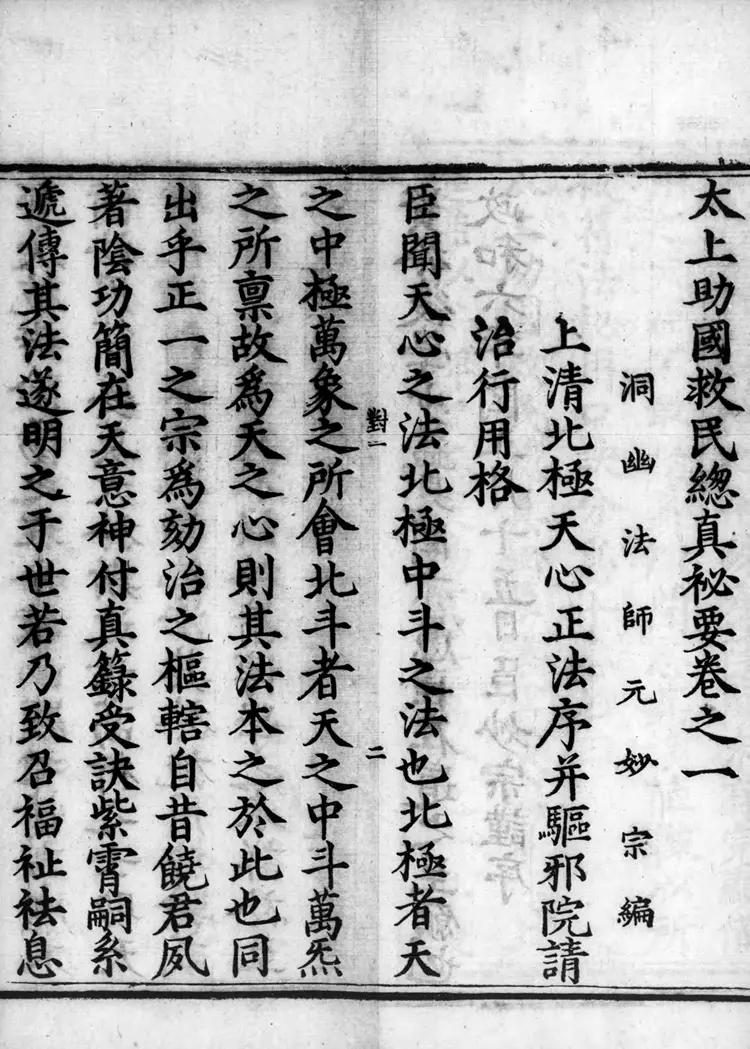 太上助國救民總真祕要卷之一
洞幽法師元妙宗編
上清北極天心正法序并驅邪院請
治行用格
臣聞天心之法北極中斗之法也北極者天
對一 二
之中極萬象之所會北斗者天之中斗萬炁
之所禀故爲天之心則其法本之於此也同
出乎正一之宗爲劾治之樞轄自昔饒君夙
著陰功簡在天意神付真籙受訣紫霄嗣系
遞傳其法遂明之于世若乃致召福祉祛息